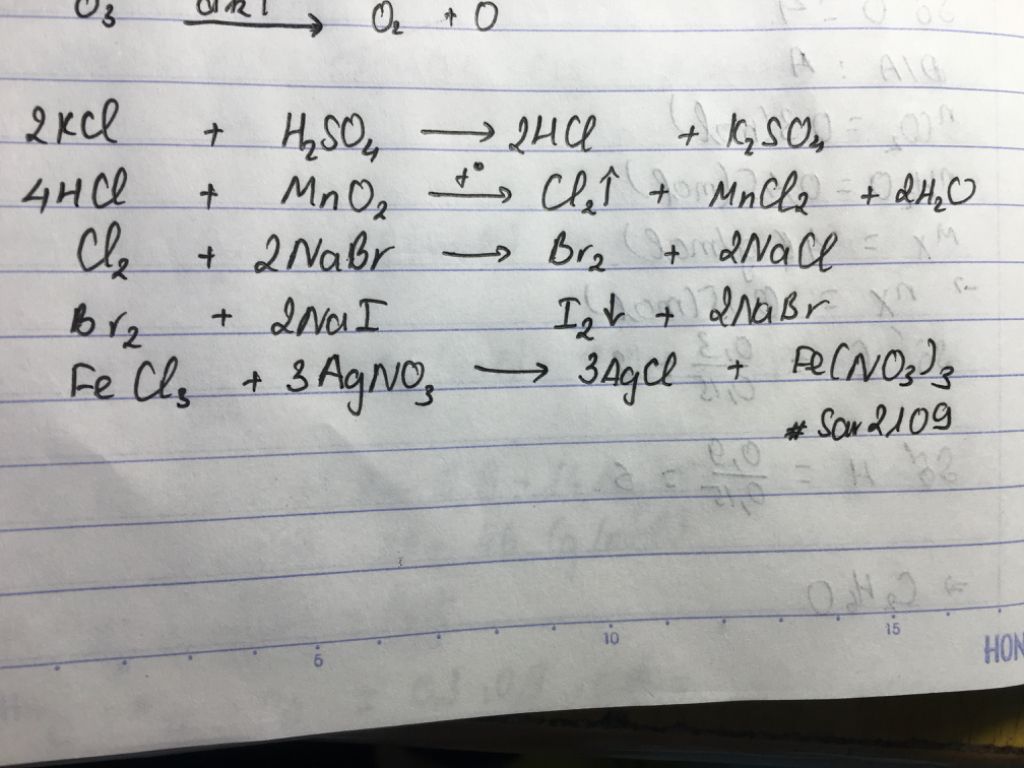 O₃ ⟶ O₂ + O
2KCl + H₂SO₄ ⟶ 2HCl + K₂SO₄
4HCl + MnO₂ t°⟶ Cl₂↑ + MnCl₂ + 2H₂O
Cl₂ + 2NaBr ⟶ Br₂ + 2NaCl
Br₂ + 2NaI I₂↓ + 2NaBr
FeCl₃ + 3AgNO₃ ⟶ 3AgCl + Fe(NO₃)₃
5 10 15
HON